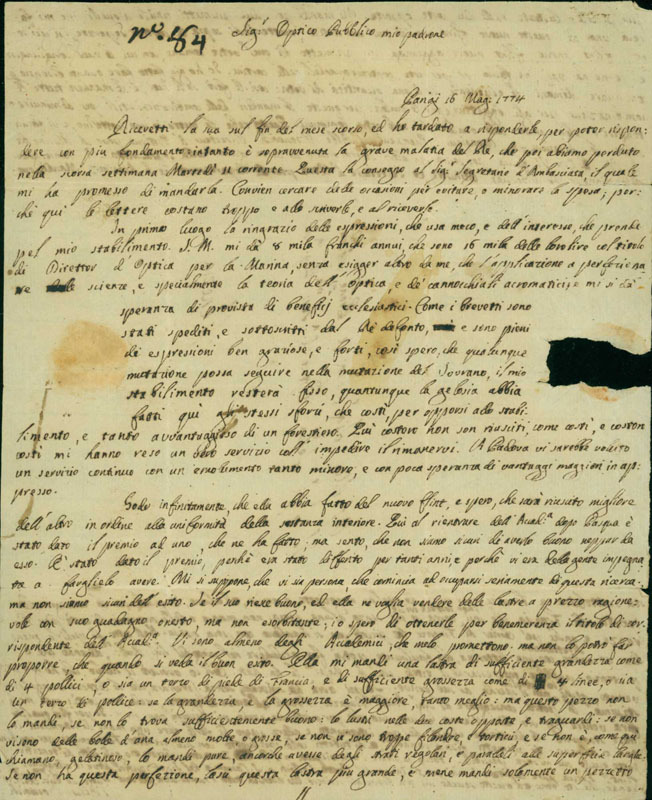 nº. 84
Sigr Optico Pubblico mio padrone
Parigi 16 Magg. 1774
Ricevetti la sua sul fin del mese scorso, ed ho tardato a risponderle, per poter rispon-
dere con più fondamento: intanto è sopravenuta la grave malatia del Re, che poi abiamo perduto
nella scorsa settimana Martedì 11 corrente. Questa la consegno al Sigr Segretario d'Ambasciata, il quale
mi ha promesso di mandarla. Convien cercare delle occasioni per evitare, o minorare la spesa; per-
chè qui le lettere costano troppo e allo scriverle, e al riceverle.
In primo luogo la ringrazio delle espressioni, che usa meco, e dell'interesse, che prende
pel mio stabilimento. S. M. mi dà 8 mila franchi annui, che sono 16 mila delle loro lire col titolo
di Direttor d'Optica per la Marina, senza esigger altro da me, che l'applicazione a perfeziona
re scienze, e specialmente la teoria dell'Optica, e de' cannocchiali acromatici; e mi si dà
speranza di provista di beneficj ecclesiastici. Come i brevetti sono
stati spediti, e sottoscritti dal Re defonto, e sono pieni
di espressioni ben graziose, e forti, così spero, che qualunque
mutazione possa seguire nella mutazione del Sovrano, il mio
stabilimento resterà fisso, quantunque la gelosia abbia
fatti qui gli stessi sforzi, che costì, per opporsi allo stabi-
limento, e tanto avvantaggioso di un forestiero. Quì costoro non son riusciti, come costì, e costoro
costì mi hanno reso un vero servizio coll'impedire il rimanervi. A Padova vi sarebbe voluto
un servizio continuo con un emolumento tanto minore, e con poca speranza di vantaggi maggiori in ap-
presso.
Godo infinitamente, che ella abbia fatto del nuovo flint, e spero, che sarà riuscito migliore
dell'altro in ordine alla uniformità della sostanza interiore. Quì al rientrare dell'Acada dopo Pasqua è
stato dato il premio ad uno, che ne ha fatto; ma sento, che non siamo sicuri di averlo buono neppur da
esso. È stato dato il premio, perchè era stato differito per tanti anni, e perchè vi era della gente impegna
ta a farglielo avere. Mi si suppone, che vi sia persona, che comincia ad occuparsi seriamente di questa ricerca:
ma non siamo sicuri dell'esito. Se il suo riesce buono, ed ella ne voglia vendere delle lastre a prezzo ragione-
vole con suo guadagno onesto, ma non esorbitante, io spero di ottenerle per benemerenza il titolo di cor-
rispondente dell'Acada. Vi sono almeno degli Accademici, che melo promettono: ma non lo posso far
proporre, che quando si veda il buon esito. Ella mi mandi una lastra di sufficiente grandezza come
di 4 pollici, o sia un terzo di piede di Francia, e di sufficiente grossezza come di 4 linee, o sia
un terzo di pollice: se la grandezza, e la grossezza è maggiore, tanto meglio: ma questo pezzo non
lo mandi, se non lo trova sufficientemente buono: lo lustri nelle due coste opposte, e traguardi: se non
vi sono delle bolle d'aria almeno molte o grosse, se non vi sono troppe filandre, e torticci, e se non è, come qui
chiamano, gelatinoso, lo mandi pure, ancorchè avesse degli strati regolari, e paralleli alle superficie larghe.
Se non ha questa perfezione, lasci questa lastra più grande, e mene mandi solamente un pezzetto